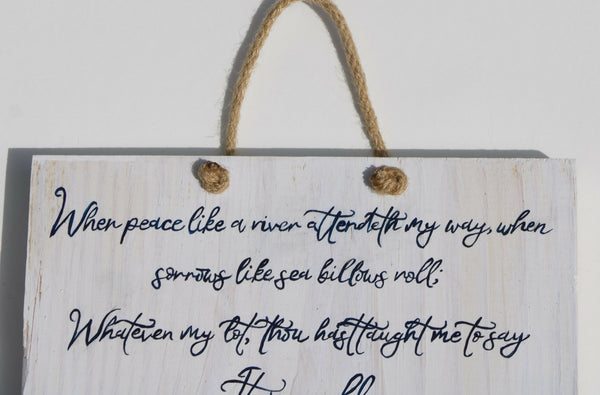 When peace like a river attendeth my way, when
sorrows like sea billows roll;
Whatever my lot, thou hast taught me to say